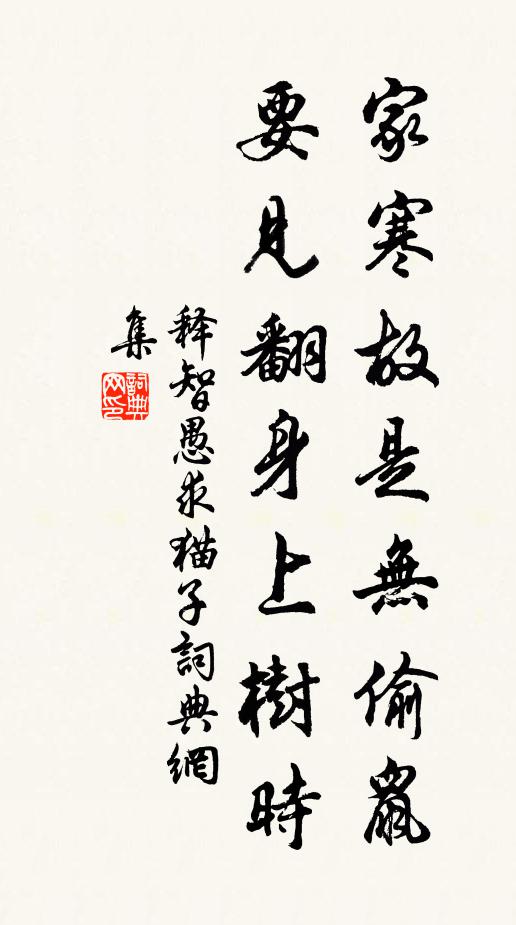 家寒故是無偷鼠
要見翻身上樹時
释智愚求猫子詞典網
集
詞典网印